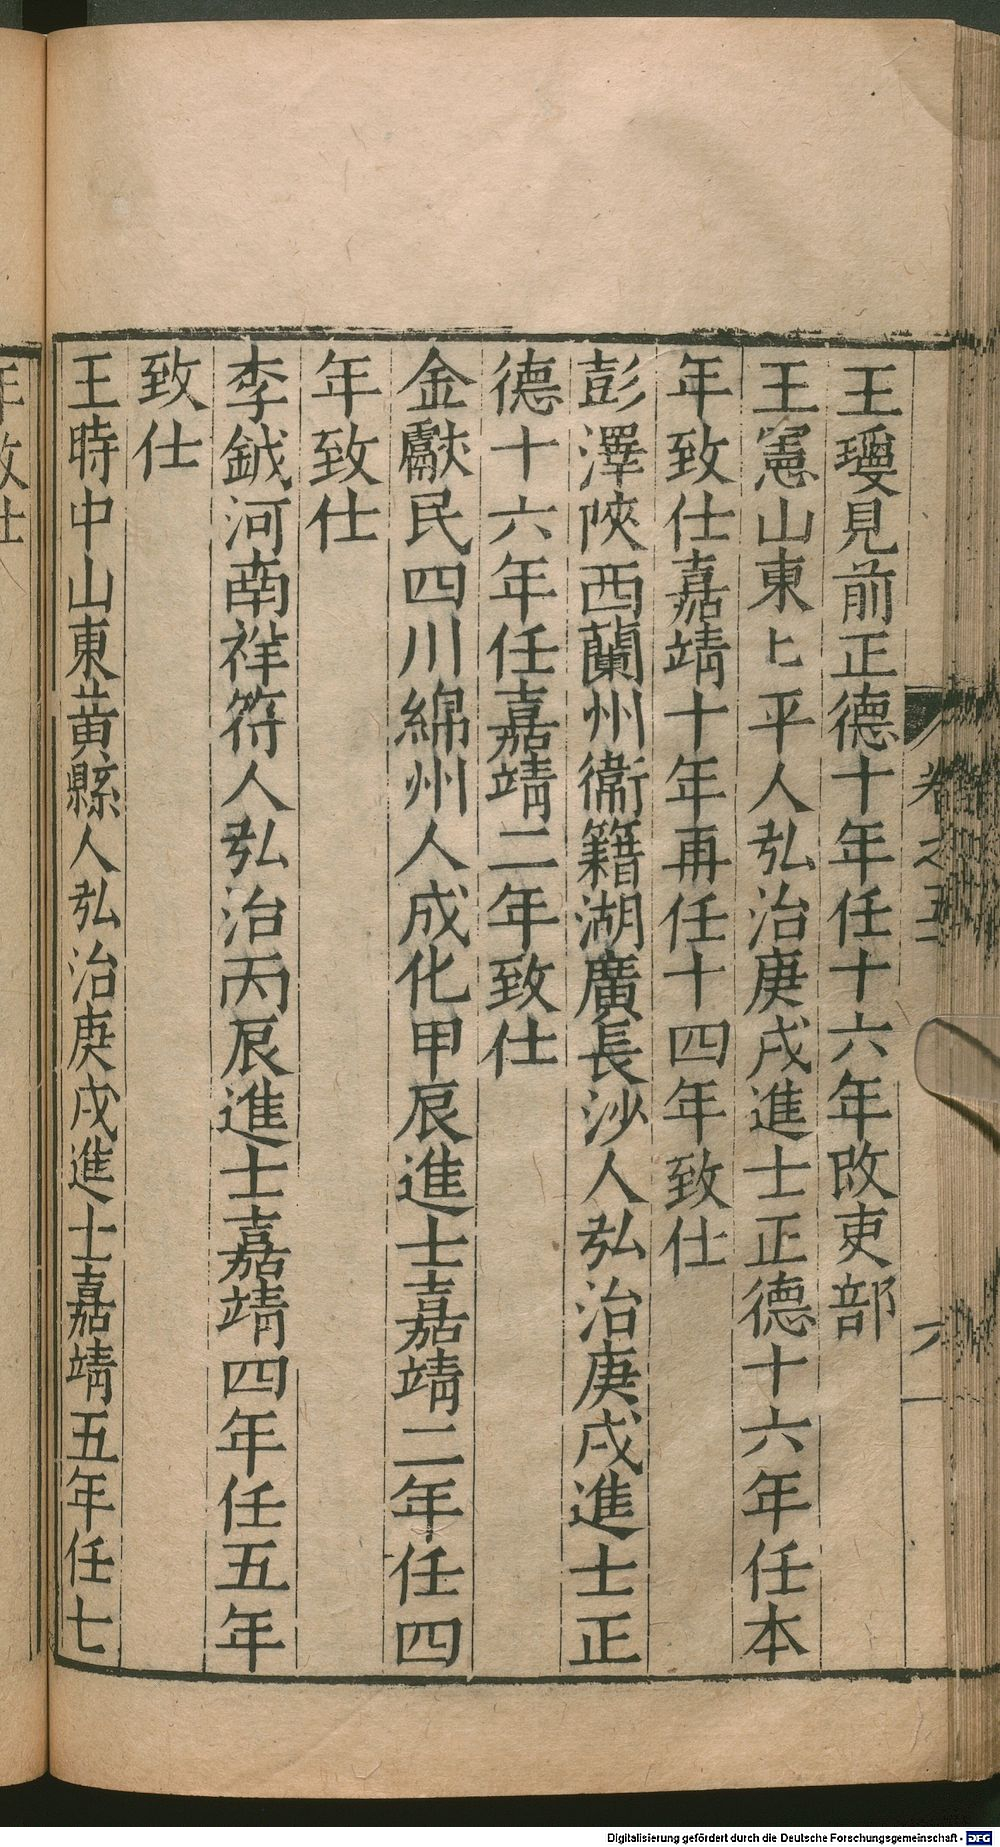 王瓊見前正德十年任十六年改吏部
王憲山東匕平人弘治庚戌進士正德十六年任本
年致仕嘉靖十年再任十四年致仕
彭澤陝西蘭州衞籍湖廣長沙人弘治庚戌進士正
德十六年任嘉靖二年致仕
金獻民四川綿州人成化甲辰進士嘉靖二年任四
年致仕
李鉞河南祥符人弘治丙辰進士嘉靖四年任五年
致仕
王時中山東黃縣人弘治庚戌進士嘉靖五年任七
年致仕
卷之五
Digitalisierung gefördert durch die Deutsche Forschungsgemeinschaft - DFG